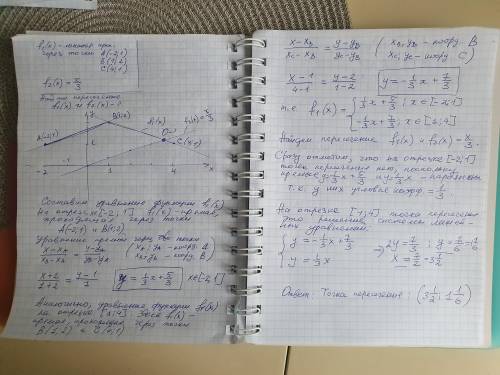 f₁(x) - ломаная прох.
через точки A(-2;1)
B(1;2)
C(4;1)
f₂(x) = x/3
Найти пересечение
f₁(x) и f₂(x) - ?
A(-2;1)
B(1;2)
f₁(x)
f₂(x) = x/3
C(4;1)
-2
-1
1
4
x
Составим уравнение функции f₁(x)
На отрезке [-2; 1] f₁(x) - прямая,
проходящая через точки
A(-2;1) и B(1;2)
Уравнение прямой через две точки
(x-x_A)/(x_B-x_A) = (y-y_A)/(y_B-y_A) (x_A; y_A - коорд. A
x_B; y_B - коорд. B)
(x+2)/(1+2) = (y-1)/1 y = 1/3 x + 5/3 x∈[-2,1]
Аналогично, уравнение функции f₁(x)
на отрезке [1; 4]. Здесь f₁(x) -
прямая, проходящая через точки
B(1;2) и C(4;1)
(x-x_B)/(x_C-x_B) = (y-y_B)/(y_C-y_B) (x_B, y_B - коорд. B
x_C; y_C - коорд. C)
(x-1)/(4-1) = (y-2)/(1-2) y = -1/3 x + 7/3
т.е. f₁(x) = { 1/3 x + 5/3; x∈[-2;1]
-1/3 x + 7/3; x∈[1;4]
Найдем пересечение f₁(x) и f₂(x) = x/3.
Сразу отметим, что на отрезке [-2;1]
точки пересечения нет, поскольку
прямые y = 1/3 x + 5/3 и y = 1/3 x - параллельны
т.к. у них угловой коэф = 1/3
На отрезке [1;4] точка пересечения
это решение системы линей-
ных уравнений.
{ y = -1/3 x + 7/3 → 2y = 7/3; y = 7/6 = 1 1/6
y = 1/3 x x = 7/2 = 3 1/2
Ответ: Точка пересечения: (3 1/2; 1 1/6)